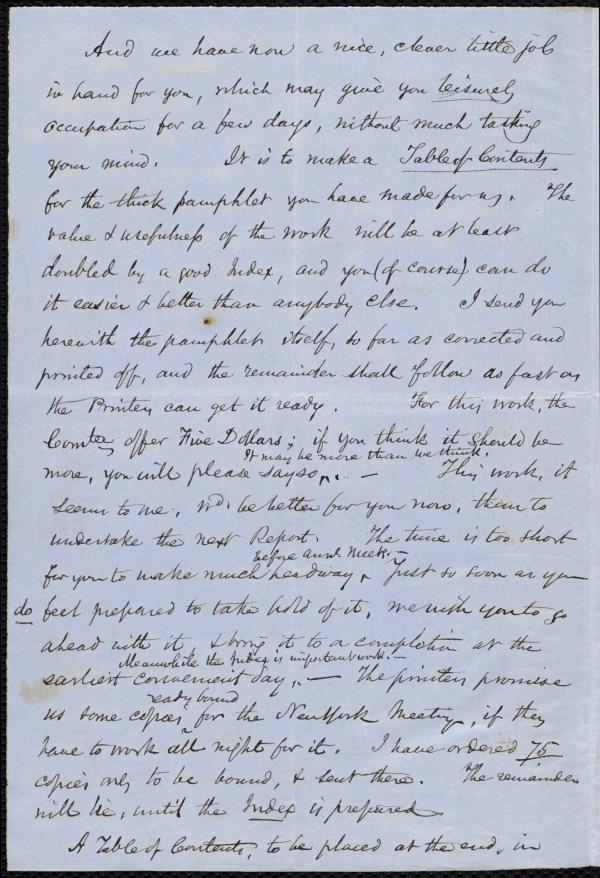 And we have now a nice, clever little job
in hand for you, which may give you leisurely
occupation for a few days, without much tasking
your mind. It is to make a Table of Contents
for the thick pamphlet you have made for us. The
value & usefulness of the work will be at least
doubled by a good Index, and you (of course) can do
it easier & better than anybody else. I send you
herewith the pamphlet itself, so far as corrected and
printed off, and the remainder shall follow as fast as
the Printers can get it ready. For this work, the
Comtee offer Five Dollars; if you think it should be
It may be more than we think.
more, you will please say so. — This work, it
seems to me, wd. be better for you now, than to
undertake the next Report. The time is too short
before annl. Meetg. —
for you to make much headway. Just so soon as you
do feel prepared to take hold of it, we wish you to go
ahead with it, & bring it to a completion at the
Meanwhile the Index is important work. —
earliest convenient day. — The printers promise
ready bound
us some copies for the New York Meeting, if they
have to work all night for it. I have ordered 75
copies only to be bound, & sent there. The remainder
will lie, until the Index is prepared.
A Table of Contents, to be placed at the end, in